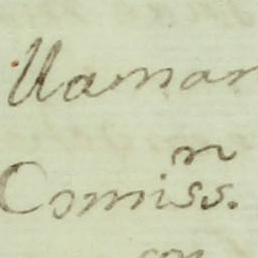 llaman
Comiss.n